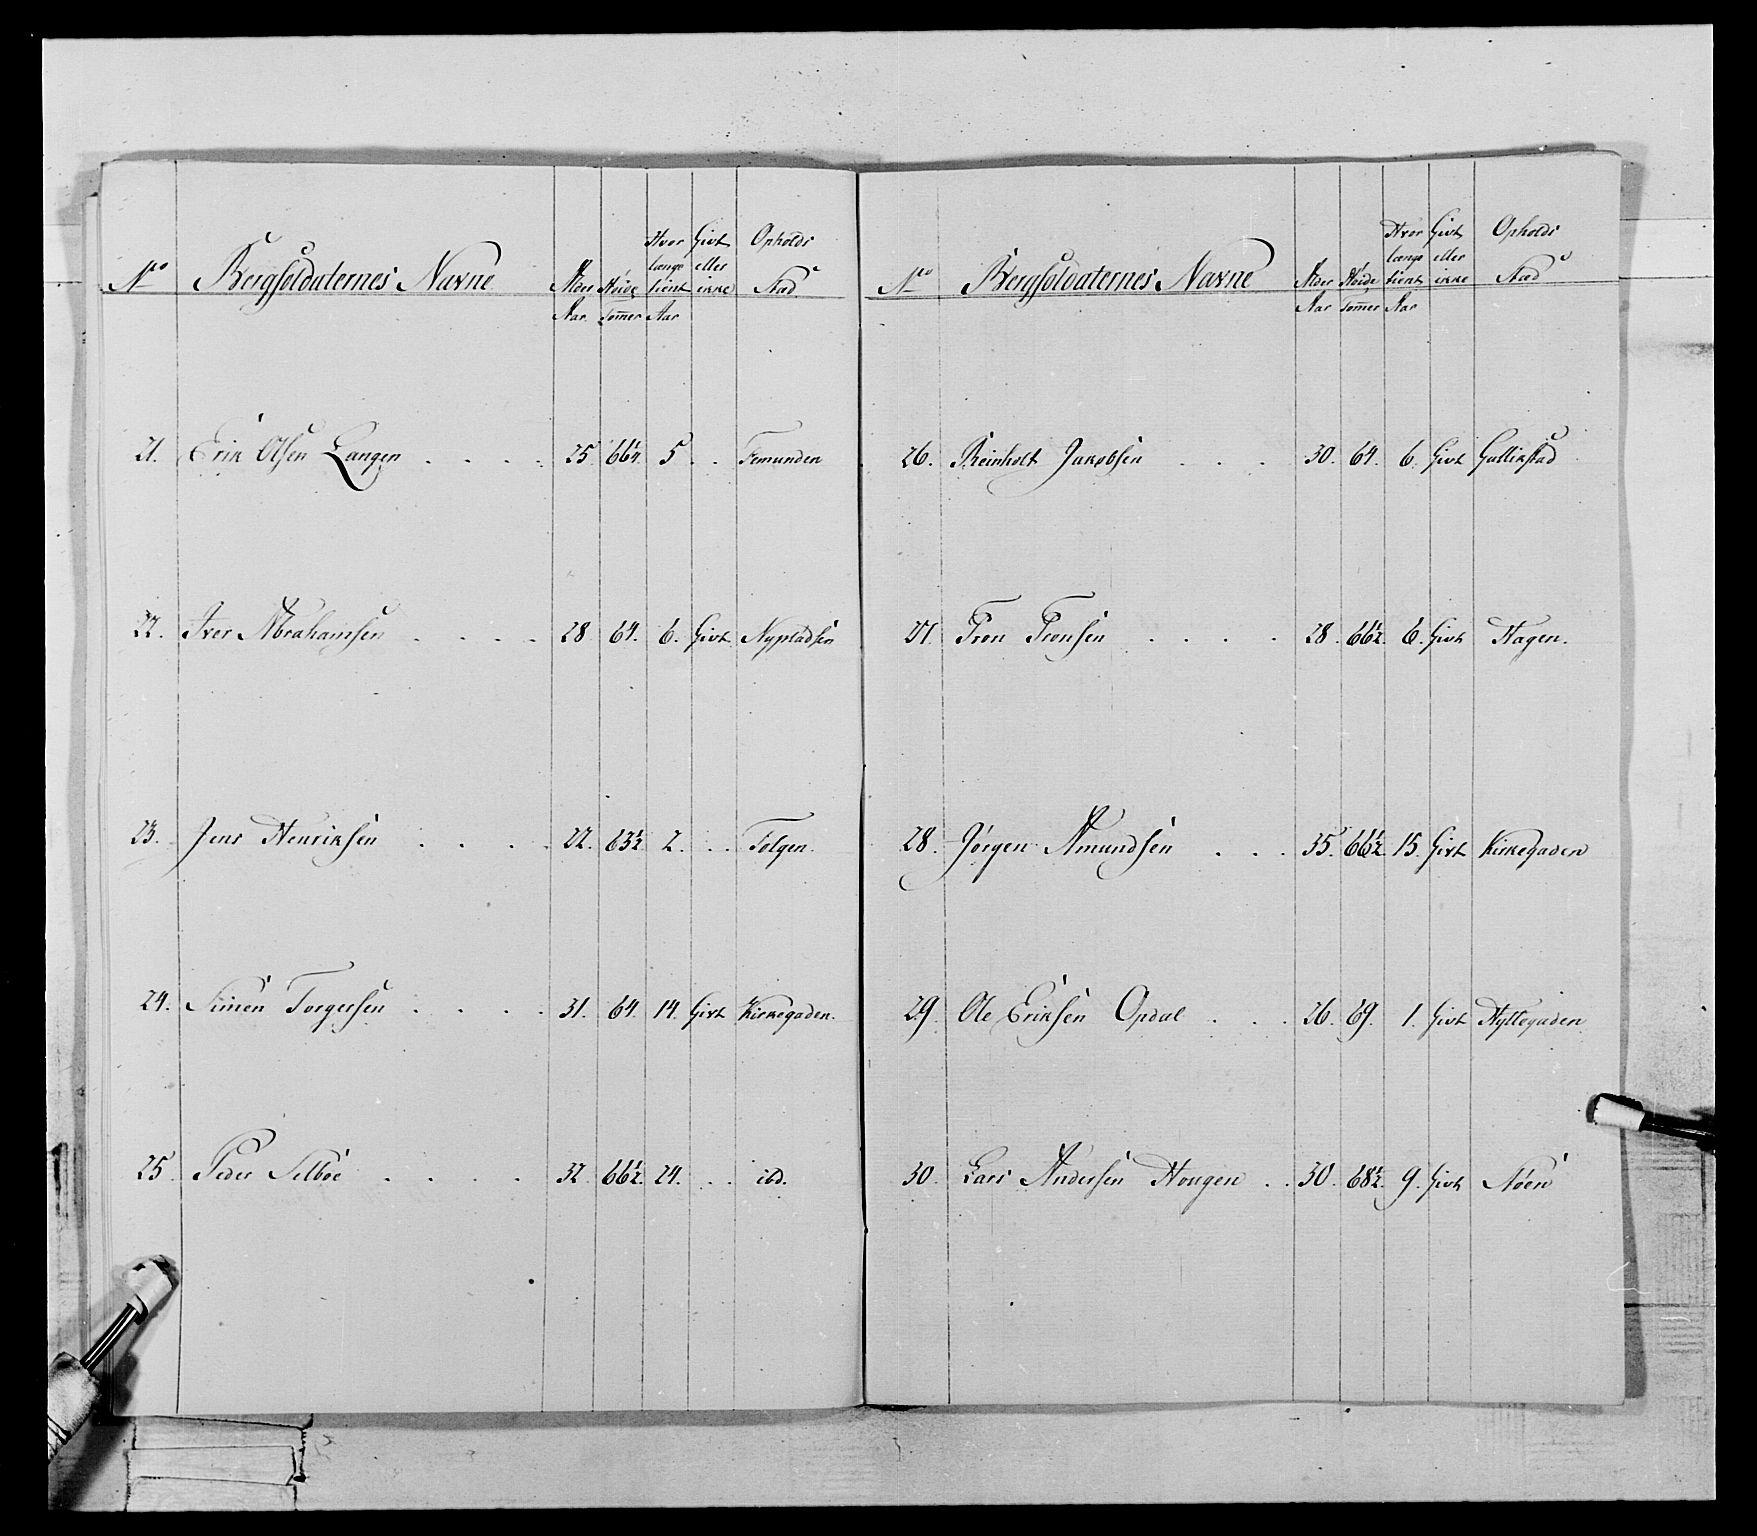 No Bergsoldaternes Navne Alder Aar Høide Tommer Hvor længe tient Aar Givt eller ikke Opholds Stad
21. Erik Olsen Langen . . . . 25. 66¼. 5 . . Femunden
22. Iver Abrahamsen . . . . 28 64. 6. Givt Nypladsen
23. Jens Henriksen . . . . 22. 63½ 2. . . Tolgen.
24. Simen Torgersen . . . . 31. 64. 14. Givt Kirkegaden.
25. Peder Selboe . . . . 32. 66½. 24. . . ibd.
No Bergsoldaternes Navne Alder Aar Høide Tommer Hvor længe tient Aar Givt eller ikke Opholds Stad
26. Reinholt Jakobsen . . . 30. 64. 6. Givt Gullikstad
27. Tron Tronsen . . . . 28. 66½. 6. Givt Hagen.
28. Jörgen Amundsen . . . 35. 66½. 15. Givt Kirkegaden
29. Ole Eriksen Opdal . . . 26. 69. 1. Givt Hyttegaden
30. Lars Andersen Hougen . . 30. 68½. 9. Givt Nöen